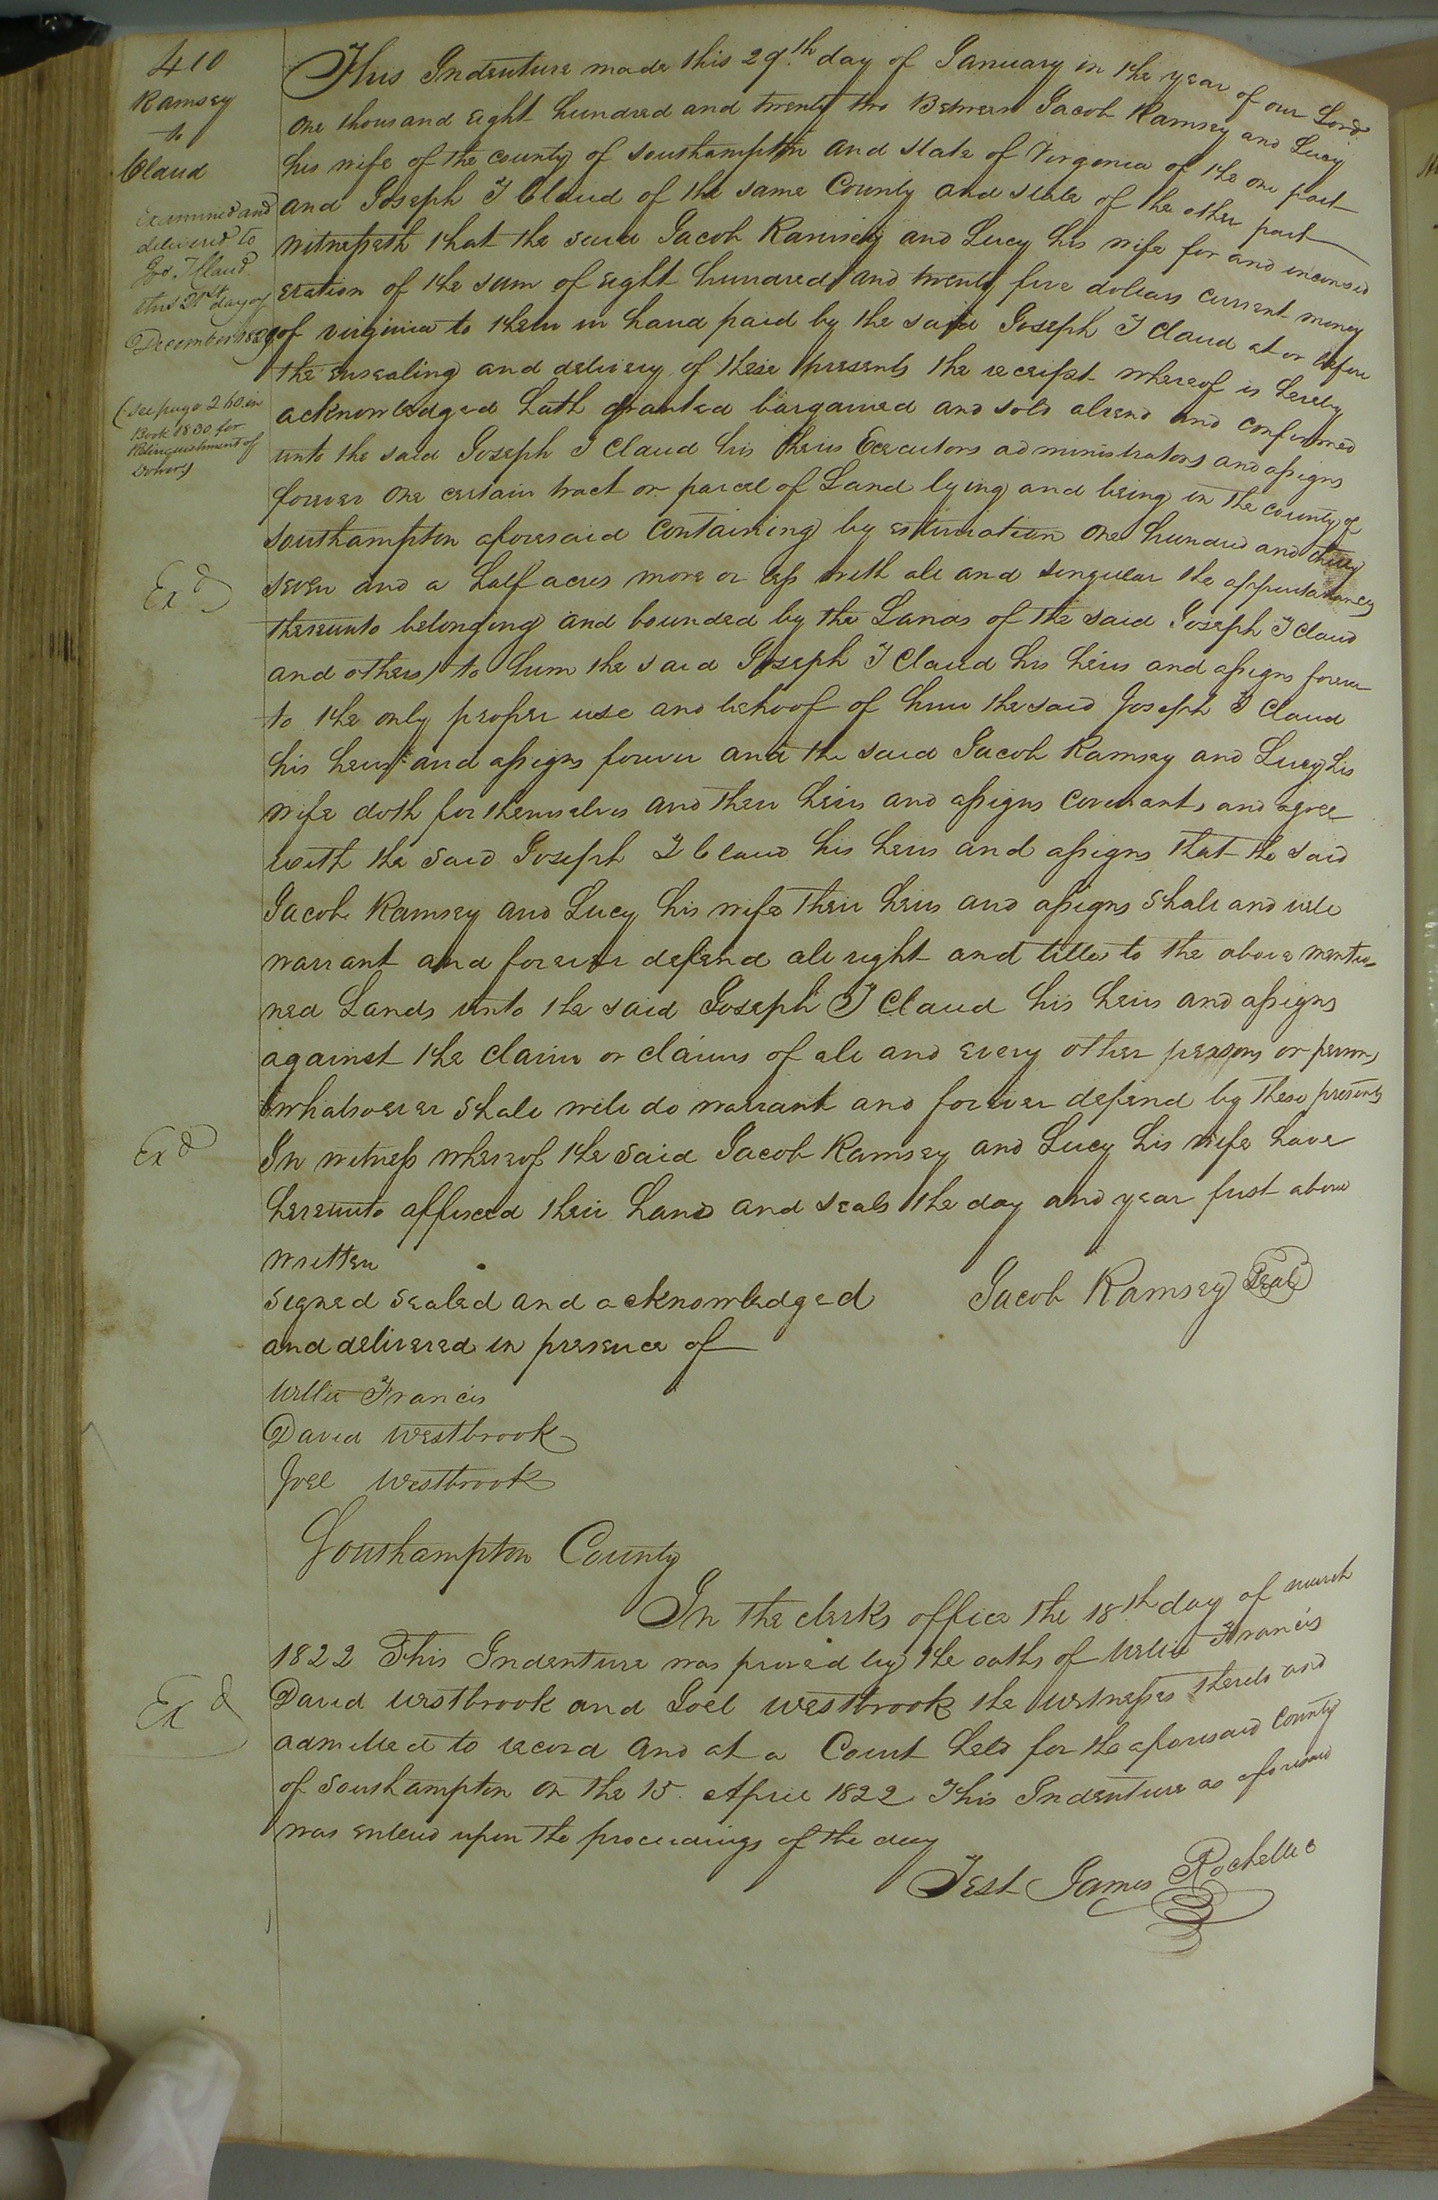 410
Ramsey
to
Claud
Examined and
delivered to
Jos. J Claud
this 21st day of
December 1829
(See page 260 in
Book 1830 for
Relinquishment of
Dower)
This Indenture made this 29th day of January in the year of our Lord
one thousand eight hundred and twenty two Between Jacob Ramsey and Lucy
his wife of the county of Southampton and state of Virginia of the one part
and Joseph J Claud of the same County and state of the other part
Witnesseth that the said Jacob Ramsey and Lucy his wife for and inconsid
eration of the sum of eight hundred and twenty five dollars current money
of virginia to them in hand paid by the said Joseph J Claud at or before
the ensealing and delivery of these presents the receipt whereof is hereby
acknowledged hath granted bargained and sold aliend and confirmed
unto the said Joseph J Claud his heirs Executors administrators and assigns
forever one certain tract or parcel of Land lying and being in the county of
Southampton aforesaid Containing by estimation One hundred and thirty
seven and a half acres more or less with all and singular the appurtanances
thereunto belonging and bounded by the Lands of the said Joseph J Claud
and others to him the said Joseph J Claud his heirs and assigns forever
to the only proper use and behoof of him the said Joseph J Claud
his heirs and assigns forever and the said Jacob Ramsey and Lucy his
wife doth for themselves and their heirs and assigns covenant and agree
with the said Joseph J Claud his heirs and assigns that the said
Jacob Ramsey and Lucy his wife their heirs and assigns shall and will
warrant and forever defend all right and title to the above mentio-
ned Lands unto the said Joseph J Claud his heirs and assigns
against the claim or claims of all and every other persons or persons
whatsoever shall will do warrant and forever defend by these presents
In witness whereof the said Jacob Ramsey and Lucy his wife have
hereunto affixed their hand and seals the day and year first above
written
Signed Sealed and acknowledged Jacob Ramsey Seal
and delivered in presence of
Willie Francis
David Westbrook
Joel Westbrook
Southampton County
In the clerks office the 18th day of march
1822 This Indenture was proved by the oaths of Willie Francis
David Westbrook and Joel Westbrook the witnesses thereto and
admitted to record and at a Court held for the aforesaid County
of Southampton on the 15 April 1822 This Indenture as aforesaid
was enterd upon the proceedings of the day
Test James Rochelle
Exd
Exd
Exd